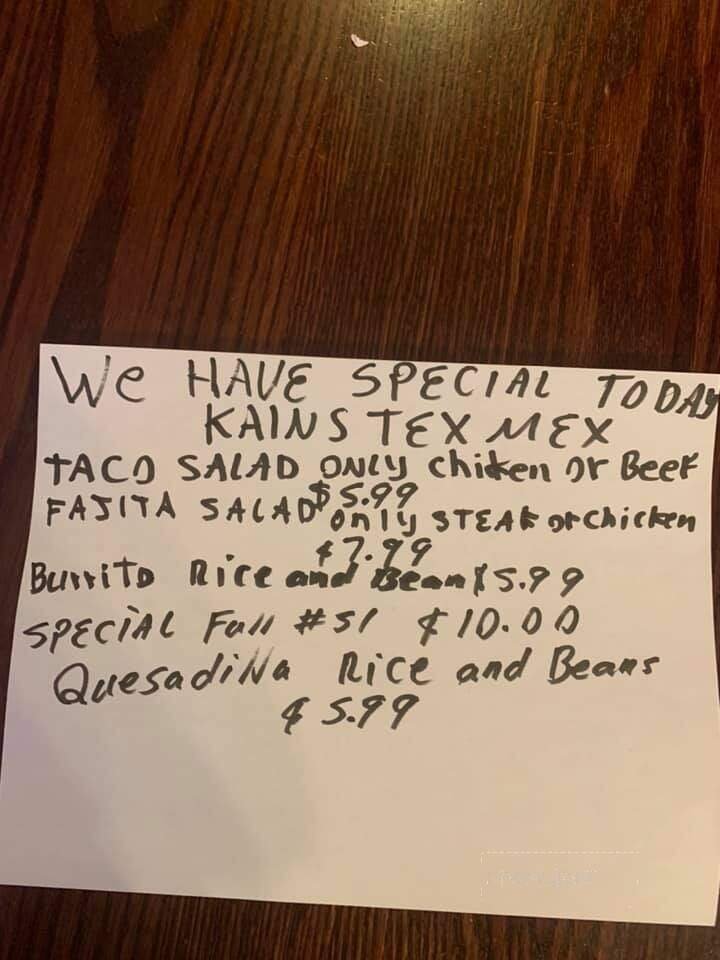 We HAVE SPECIAL TODAY
KAINS TEX MEX
TACO SALAD ONLY Chiken or Beef
$5.99
FAJITA SALAD only STEAK or Chicken
$7.99
Burrito Rice and Bean $5.99
SPECIAL Full #51 $10.00
Quesadilla Rice and Beans
$5.99